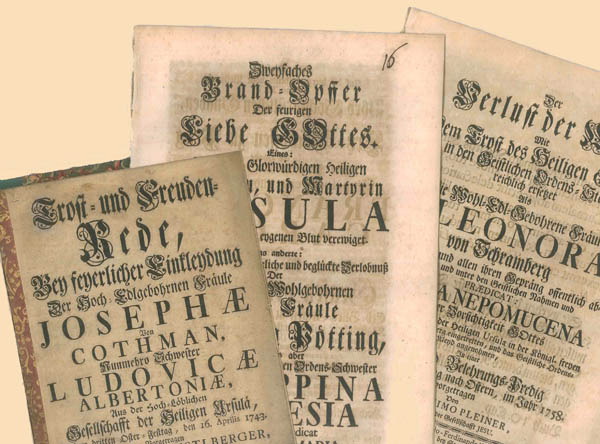 Trost- und Freuden-
Rede,
Bey feyerlicher Einkleydung
Der Hoch-Edlgebohrnen Fräule
JOSEPHÆ
Von
COTHMAN,
Nunmehro Schwester
LUDOVICÆ
ALBERTONIÆ,
Aus der Hoch-Löblichen
Gesellschafft der Heiligen Ursulä,
dritten Oster-Festag, den 16. Aprilis 1743.
Vorgetragen
16
Zweyfaches
Brand-Opffer
Der feurigen
Liebe GOttes.
Eines:
Glorwürdigen Heiligen
und Martyrin
SULA
eygenen Blut verewiget.
anderte:
liche und beglückte Verlobnuß
Der
Wohlgebohrnen
Fräule
Pötting,
aber
Ordens-Schwester
PPINA
ESIA
dicat
MARIA
Der
Verlust der
Mit
dem Trost des Heiligen
in den Geistlichen Ordens-
reichlich ersetzet
Als
die Wohl-Edl-Gebohrene Fräule
LEONORA
von Schramberg
und allen ihren Gepräng offentlich ab
und unter den Geistlichen Nahmen und
PRÆDICAT:
A NEPOMUCENA
der Vorsichtigkeit Gottes
der Heiligen Ursulä in der Königl. freyen
eingetretten, und das Geistliche Ordens-
angenommen,
In einer
Belehrungs-Predig
nach Ostern, im Jahr 1758.
vorgetragen
Von
IMO PLEINER,
der Gesellschafft JESU.